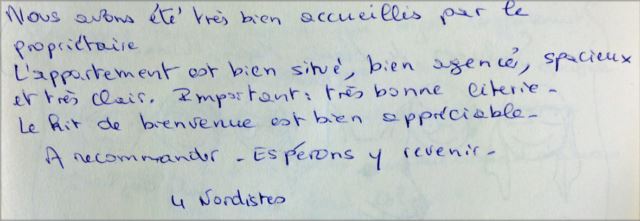 Nous avons été très bien accueillis par le
propriétaire
L'appartement est bien situé, bien agencé, spacieux
et très clair. Important : très bonne literie -
Le kit de bienvenue est bien appréciable -
A recommander - Espérons y revenir -
4 Nordistes